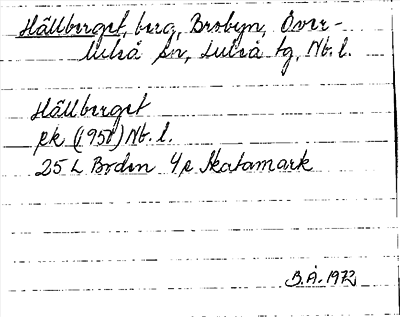 Hällberget, berg, Brobyn, Över-
luleå sn, Luleå tg, Nb. l.
Hällberget
ek (1950) Nb. l.
25 L Boden 4c Skatamark
B.Å. 1972